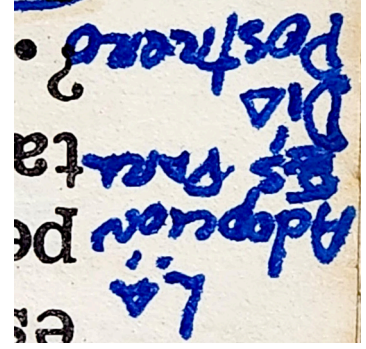 La es
Adopcion pe
para ta
Dia
Postrero ¿